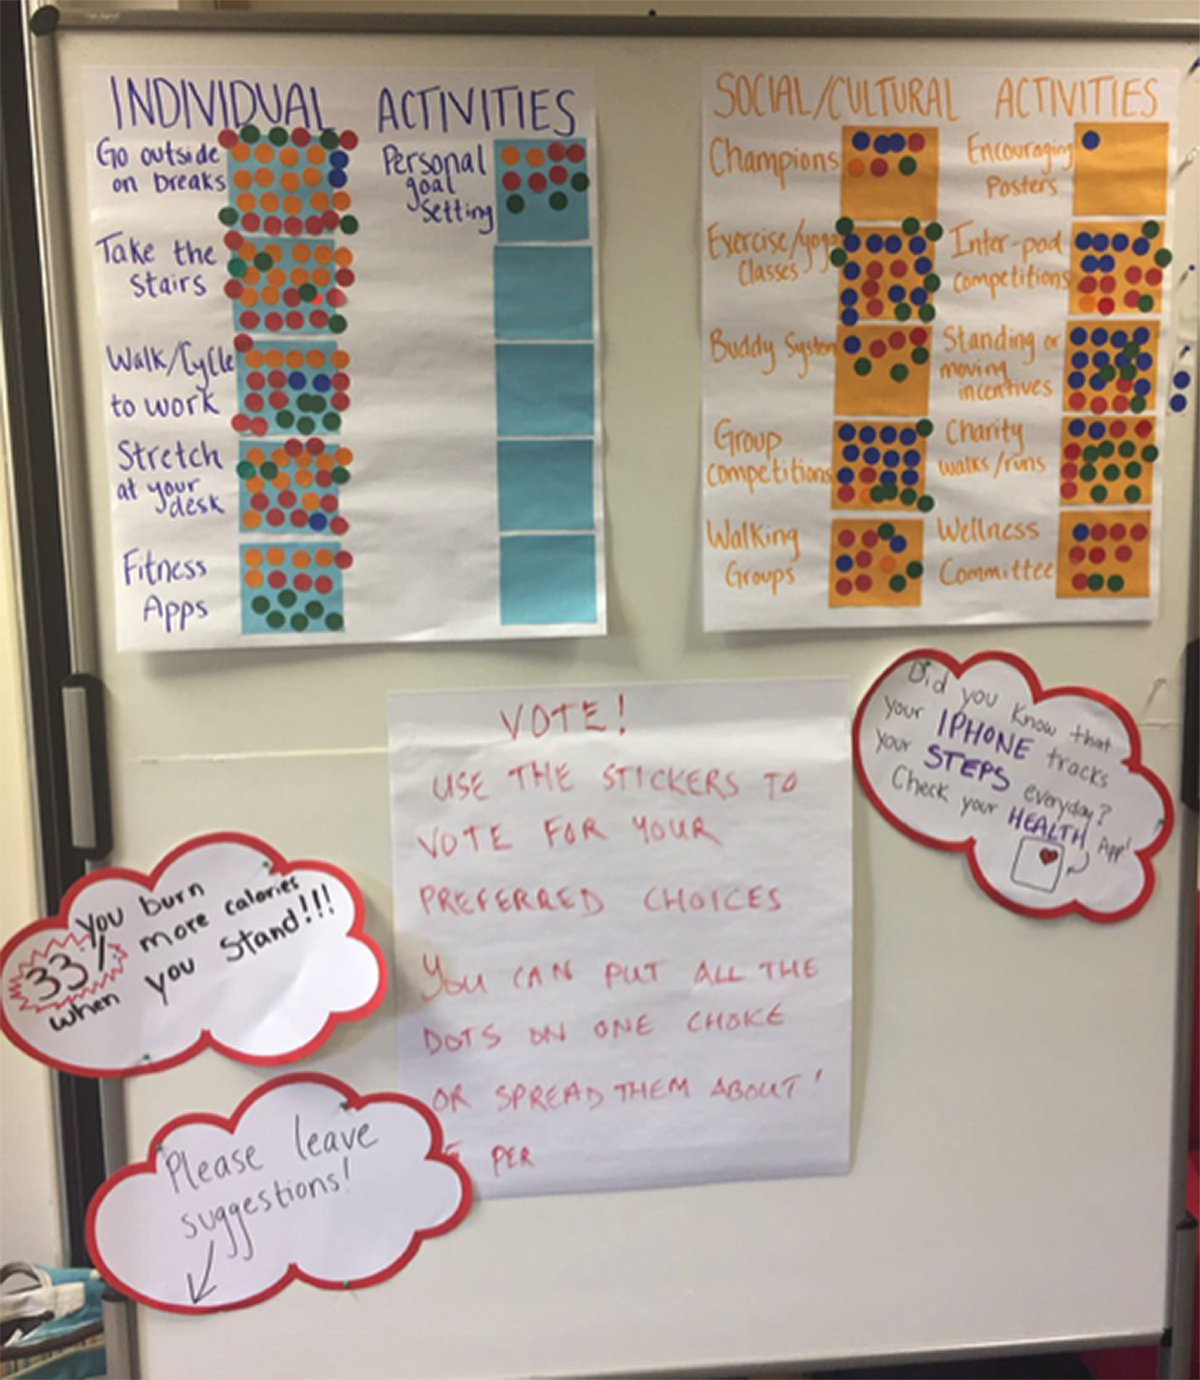 INDIVIDUAL ACTIVITIES
Go outside
on breaks
Take the
Stairs
Walk/Cycle
to work
Stretch
at your
desk
Fitness
Apps
Personal
goal
Setting
SOCIAL/CULTURAL ACTIVITIES
Champions
Exercise/yoga
Classes
Buddy System
Group
competitions
Walking
Groups
Encouraging
Posters
Inter-pod
competitions
Standing or
moving
incentives
Charity
walks/runs
Wellness
Committee
VOTE!
USE THE STICKERS TO
VOTE FOR YOUR
PREFERRED CHOICES
YOU CAN PUT ALL THE
DOTS ON ONE CHOICE
OR SPREAD THEM ABOUT!
PER
Did you know that
your IPHONE tracks
your STEPS everyday?
Check your HEALTH App!
You burn
33% more calories
when you stand!!!
Please leave
suggestions!